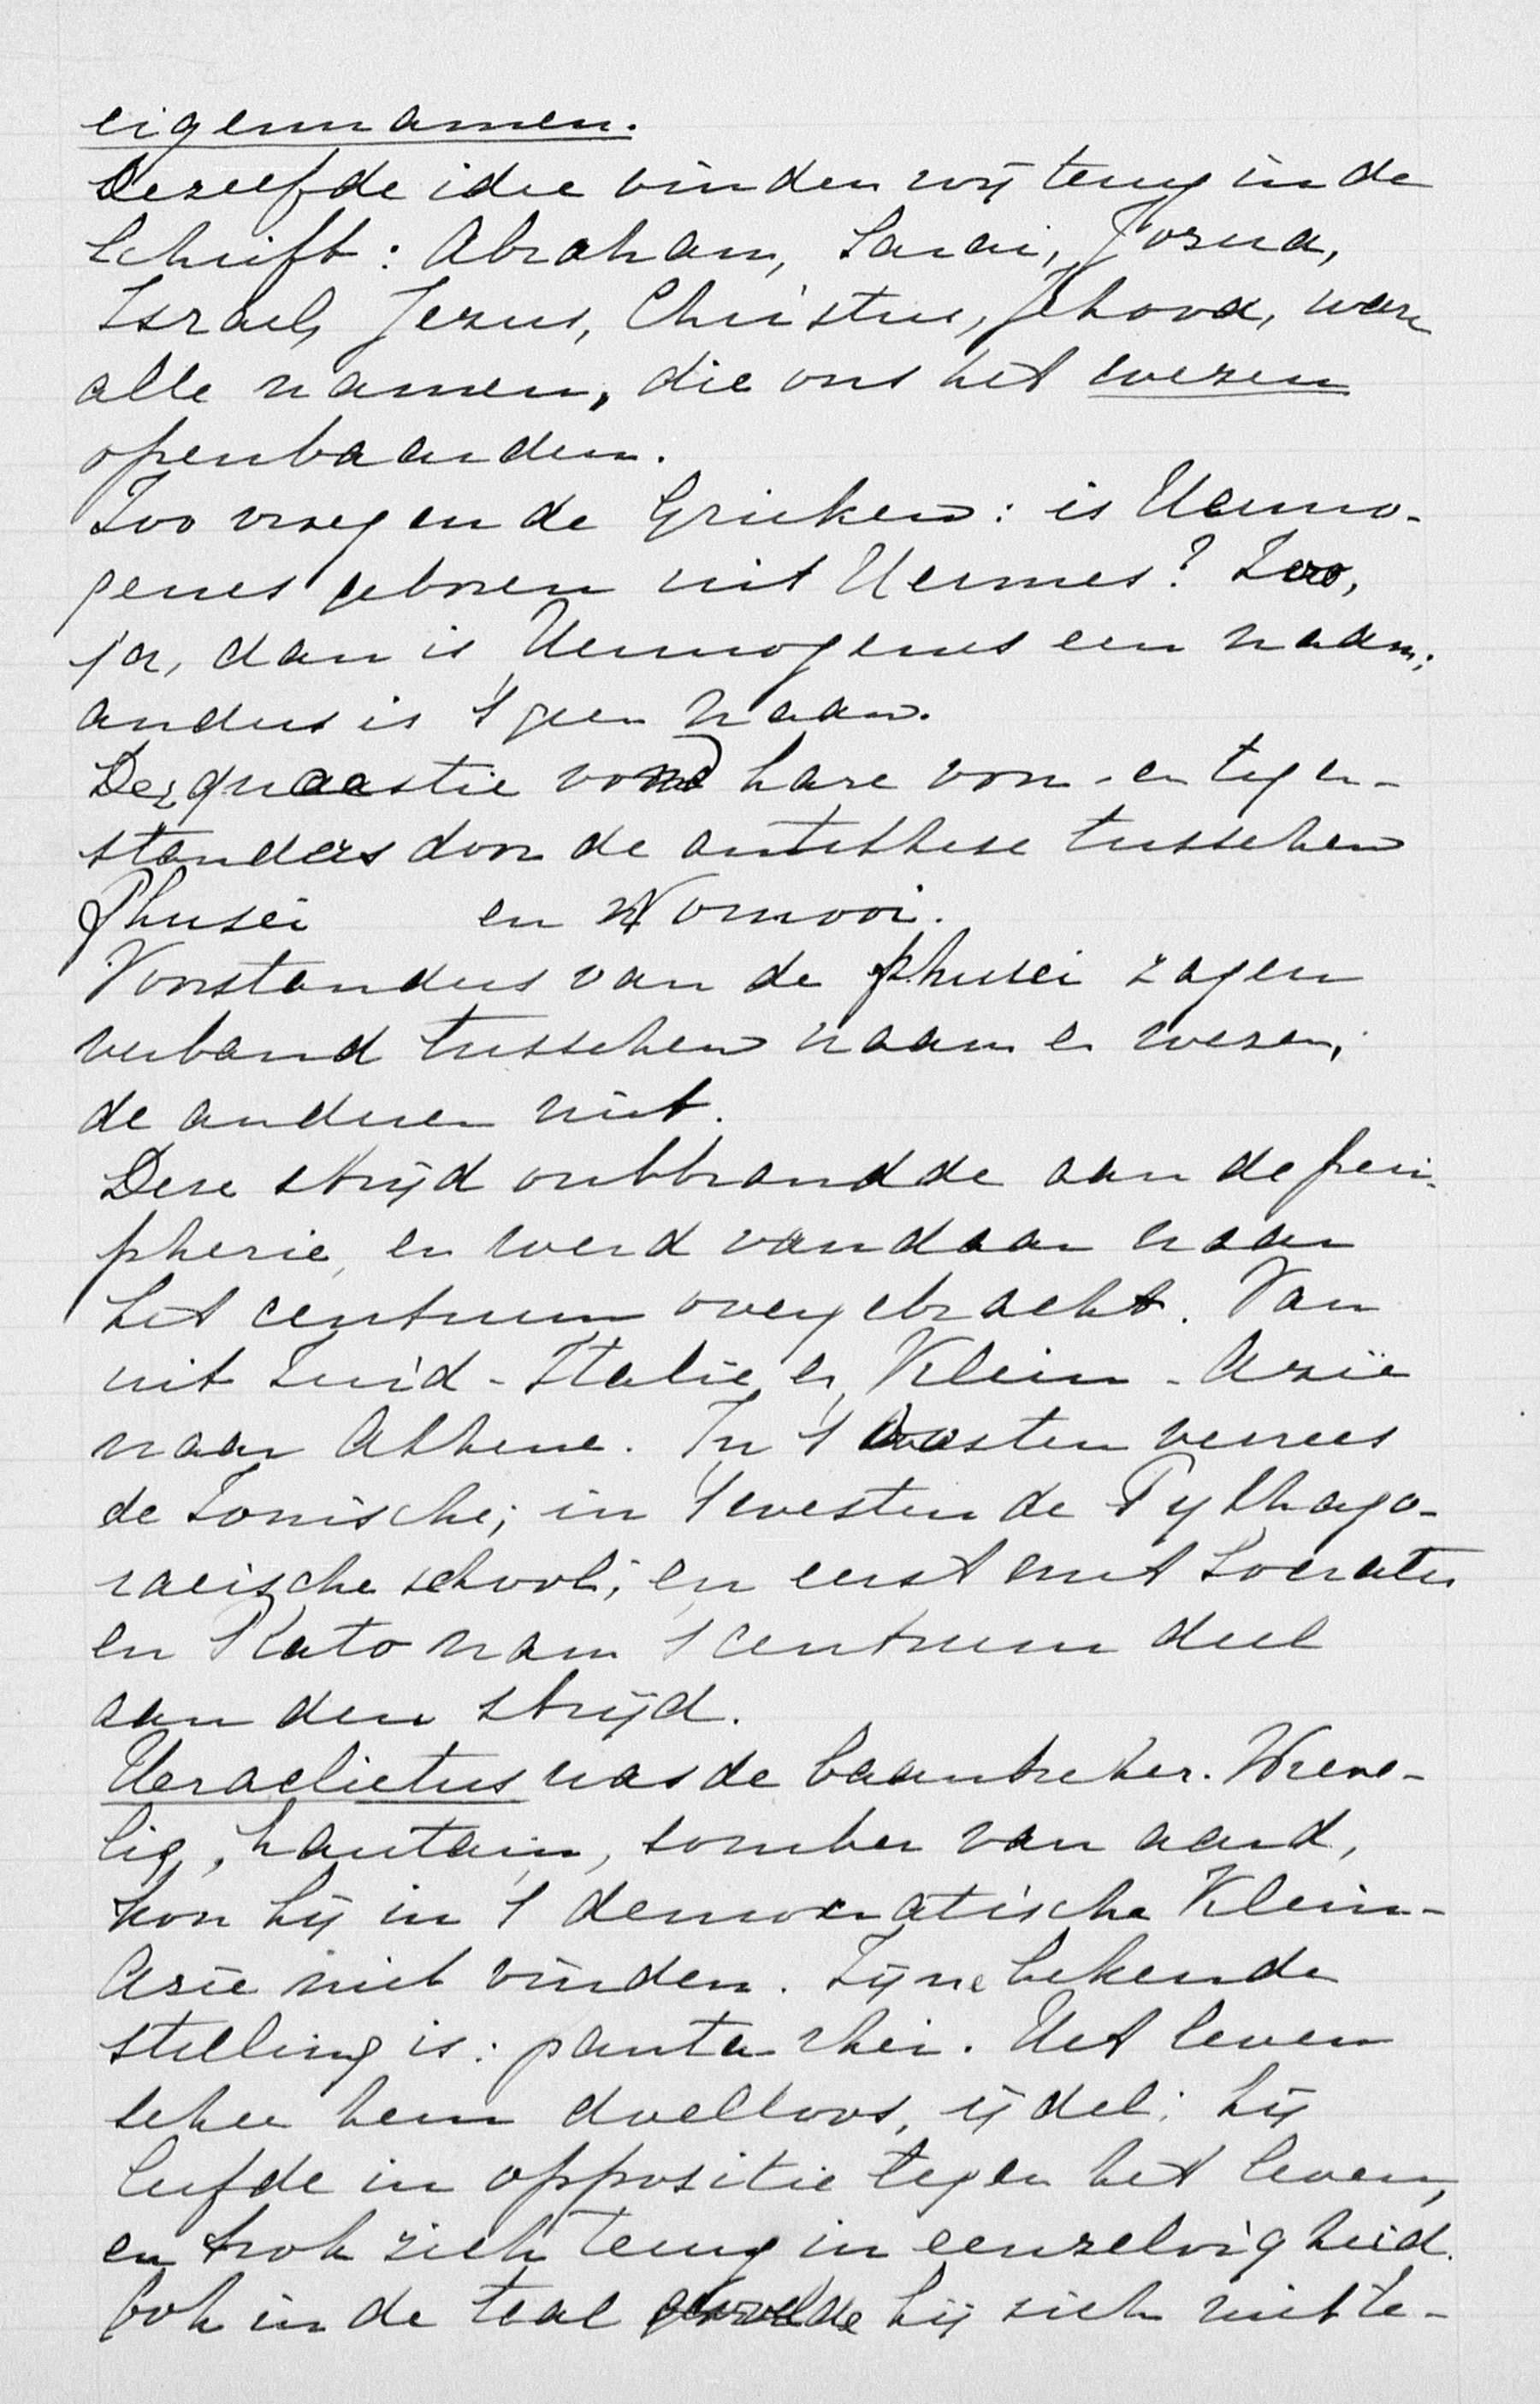 eigennamen.
Dezelfde idee vinden wij terug in de
Schrift: Abraham, Sarai, Jozua,
Israel, Jezus, Christus, Jehova, waren
alle namen, die ons het wezen
openbaarden.
Zoo vroegen de Grieken: is Hermo-
genes geboren uit Hermes? Zoo,
ja, dan is Hermogenes een naam;
anders is 't geen naam.
Dez quaestie vond hare voor- en tegen-
standers door de antithese tusschen
Phusei en Nomooi.
Voorstanders van de phusei zagen
verband tusschen naam en wezen,
de anderen niet.
Deze strijd ontbrandde aan de peri-
pherie, en werd vandaar naar
het centrum overgebracht. Van
uit Zuid-Italië en Klein-Azië
naar Athene. In 't Oosten verrees
de Ionische; in 't westen de Pythago-
raeische school; en eerst met Socrates
en Plato nam 't centrum deel
aan den strijd.
Heraclietus was de baanbreker. Wreve-
lig, hautain, somber van aard,
kon hij in 't democratische Klein-
Azië niet vinden. Zijne bekende
stelling is: panta rhei. Het leven
scheen hem doelloos, ijdel; hij
leefde in oppositie tegen het leven,
en trok zich terug in eenzelvigheid.
Ook in de taal hij zich niet te-